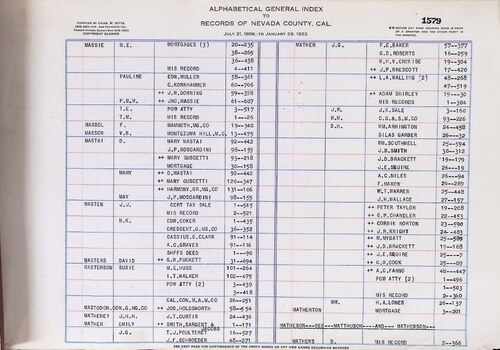 ALPHABETICAL GENERAL INDEX
TO
RECORDS OF NEVADA COUNTY, CAL.
JULY 21, 1856, TO JANUARY 26, 1922
1579
MASSIE M.E. MORTGAGES (3) 20--235
38--265
36--438
MIS RECORD 4--411
PAULINE EDW, MULLER 58--361
C, KORNHAMMER 60--706
++ J.W, DOWNING 59--378
F.B.W. ++ JNO, MASSIE 61--607
T.E. POW ATTY 3--517
T.M. MIS RECORD 1--26
MASSOL F. MAMMOTH, MG, CO 19--340
MASSON V.B. MONTEZUMA HILL, M, G 13--475
MASTAI D. MARY MASTAI 92--442
J.P, MOSCARDINI 98--155
++ MARY GUSCETTI 93--218
MORTGAGE 30--158
MARY ++ D, MASTAI 92--442
++ MARY GUSCETTI 120--347
++ HARMONY, GR, MG, CO 131--106
MAY J.P, MOSCARDINI 98--155
MASTEN J.J. CERT TAX SALE 1--555
MIS RECORD 2--521
N.K. EDW, COKER 1--435
CRESCENT, G, MG, CO 36--352
CASSIUS, C, CLARK 91--114
A.C, GRAVES 91--116
SHFFS DEED 1--90
MASTERS DAVID ++ G.W, PUCKETT 31--694
MASTERSON SUSIE M.E, HUSS 101--264
I.T, WALKER 102--475
POW ATTY (2) 3--439
3--418
CAL, CON, M, & M, CO 26--251
MASTODON, CON, G, MG, CO ++ JOS, HOLDSWORTH 58--554
MATHENEY J.H.H. J.T, CURTIS 24--436
MATHER EMILY ++ SMITH, SARGENT & JACOBS 1--171
J.G. T.J, POULTERET 16--527
J.F, SCHROEDER 48--271
MATHER J.G. F.E, BAKER 57--377
G.D, ROBERTS 16--259
W.H.V, CRONISE 19--304
++ J.F, PRESCOTT 17--420
++ L.A, WALLING (2) 48--268
47--519
++ ADAM SHIRLEY 19---30
MIS RECORDS 1--304
J.M. J.K, SALE 3--160
W.H. C.G, & S, M, CO 93--226
S.H. WM, ARRINGTON 24--458
SILAS GARBER 26--32
WM, SOUTHWELL 25--594
J.B, SMITH 30--312
J.D, BRACKETT 19--179
J.E, SQUIRE 26--19
A.C, NILES 26--894
F, MAXON 26--289
W.T, WARREN 25--448
J.H, WALLACE 27--157
++ PETER TAYLOR 19--208
++ G.W, CHANDLER 22--453
++ CORBIN NORTON 23--590
++ J.H, KNIGHT 24--403
++ M, WYGATT 25--589
++ J.D, BRACKETT 19--168
++ J.E, SQUIRE 25---7
++ C.W, COOK 25--89
++ A.D, FANNO 48--447
POW ATTY (2) 1--496
1--503
MIS RECORD 2--360
WM. H.A, LONER 26--137
MATHERTON MORTGAGE 3--201
MATHESON---SEE---MATTHUSON---AND---MATHERSON---
MATHEWS D. MIS RECORD 2--366